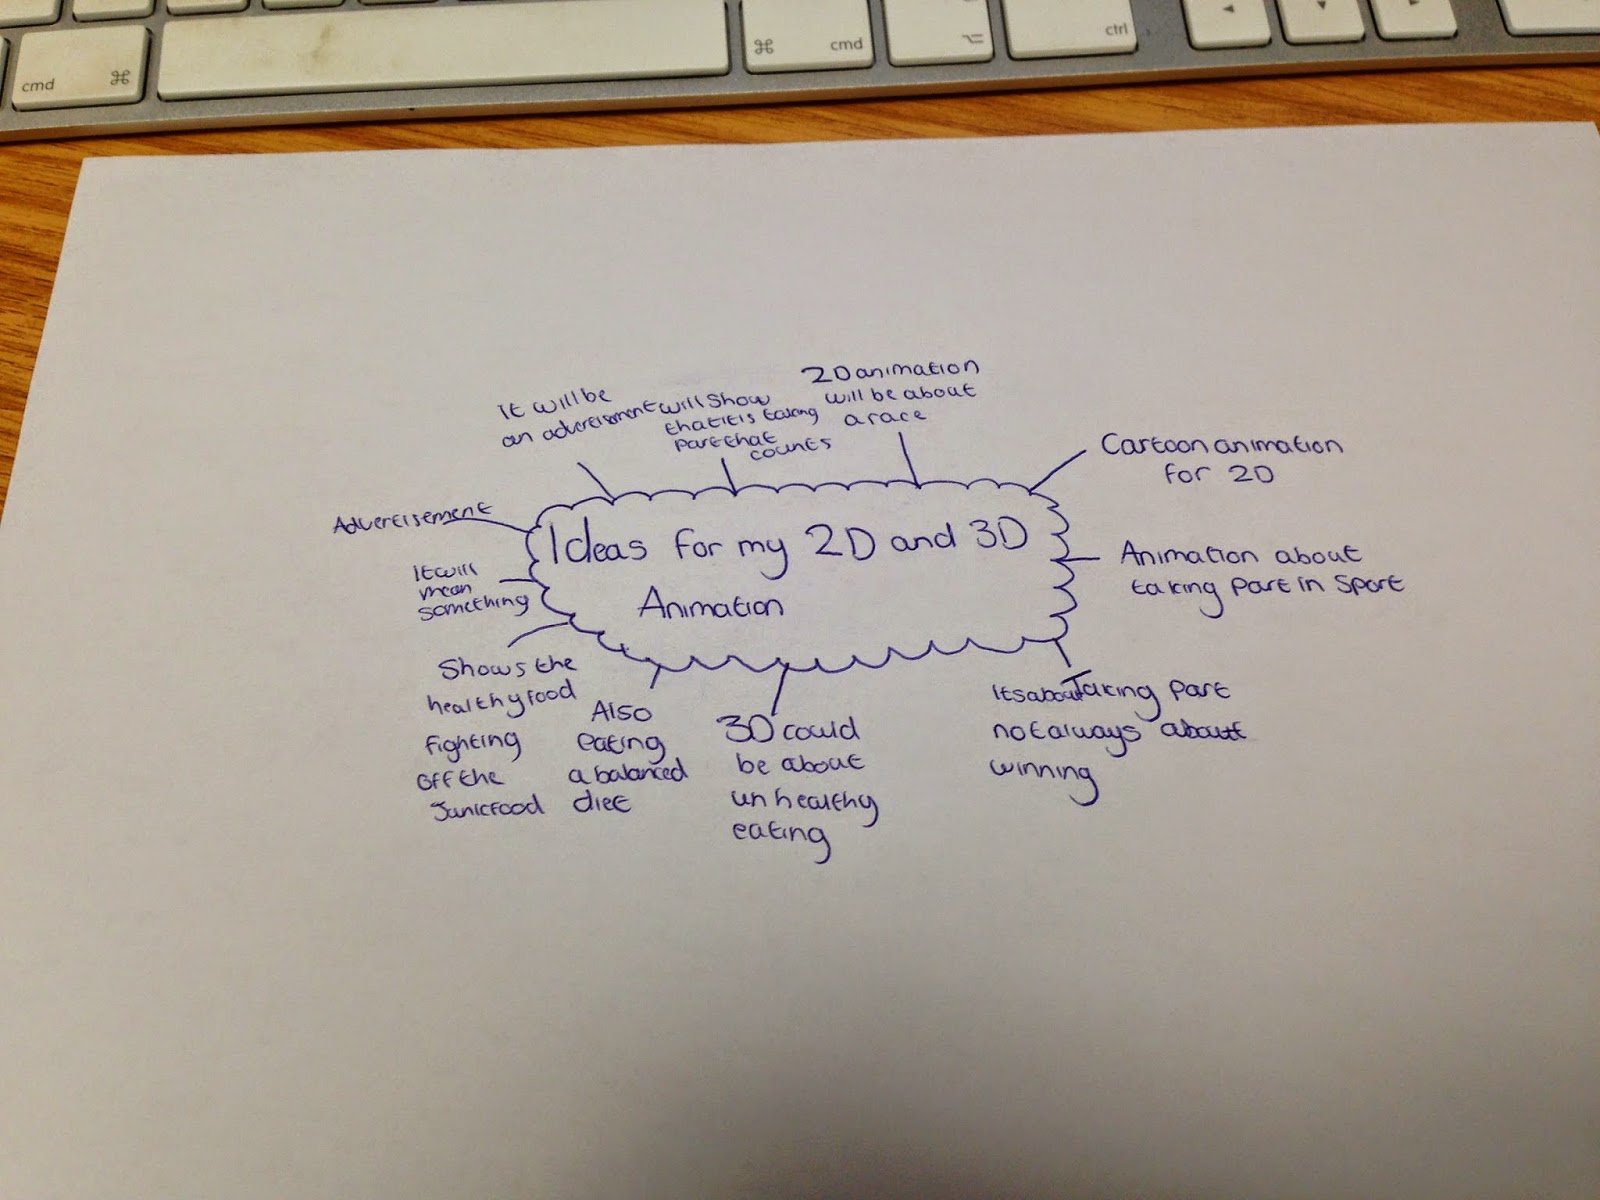 cmd ⌘
⌘ cmd
⌥
ctrl
◄
▼
►
It will be
an advertisement
will show
that it is taking
part that
counts
2D animation
will be about
a race
Cartoon animation
for 2D
Advertisement
Ideas for my 2D and 3D
Animation
Animation about
taking part in sport
It will
mean
something
Shows the
healthy food
fighting
off the
Junkfood
Also
eating
a balanced
diet
3D could
be about
unhealthy
eating
Its about Taking part
not always about
winning